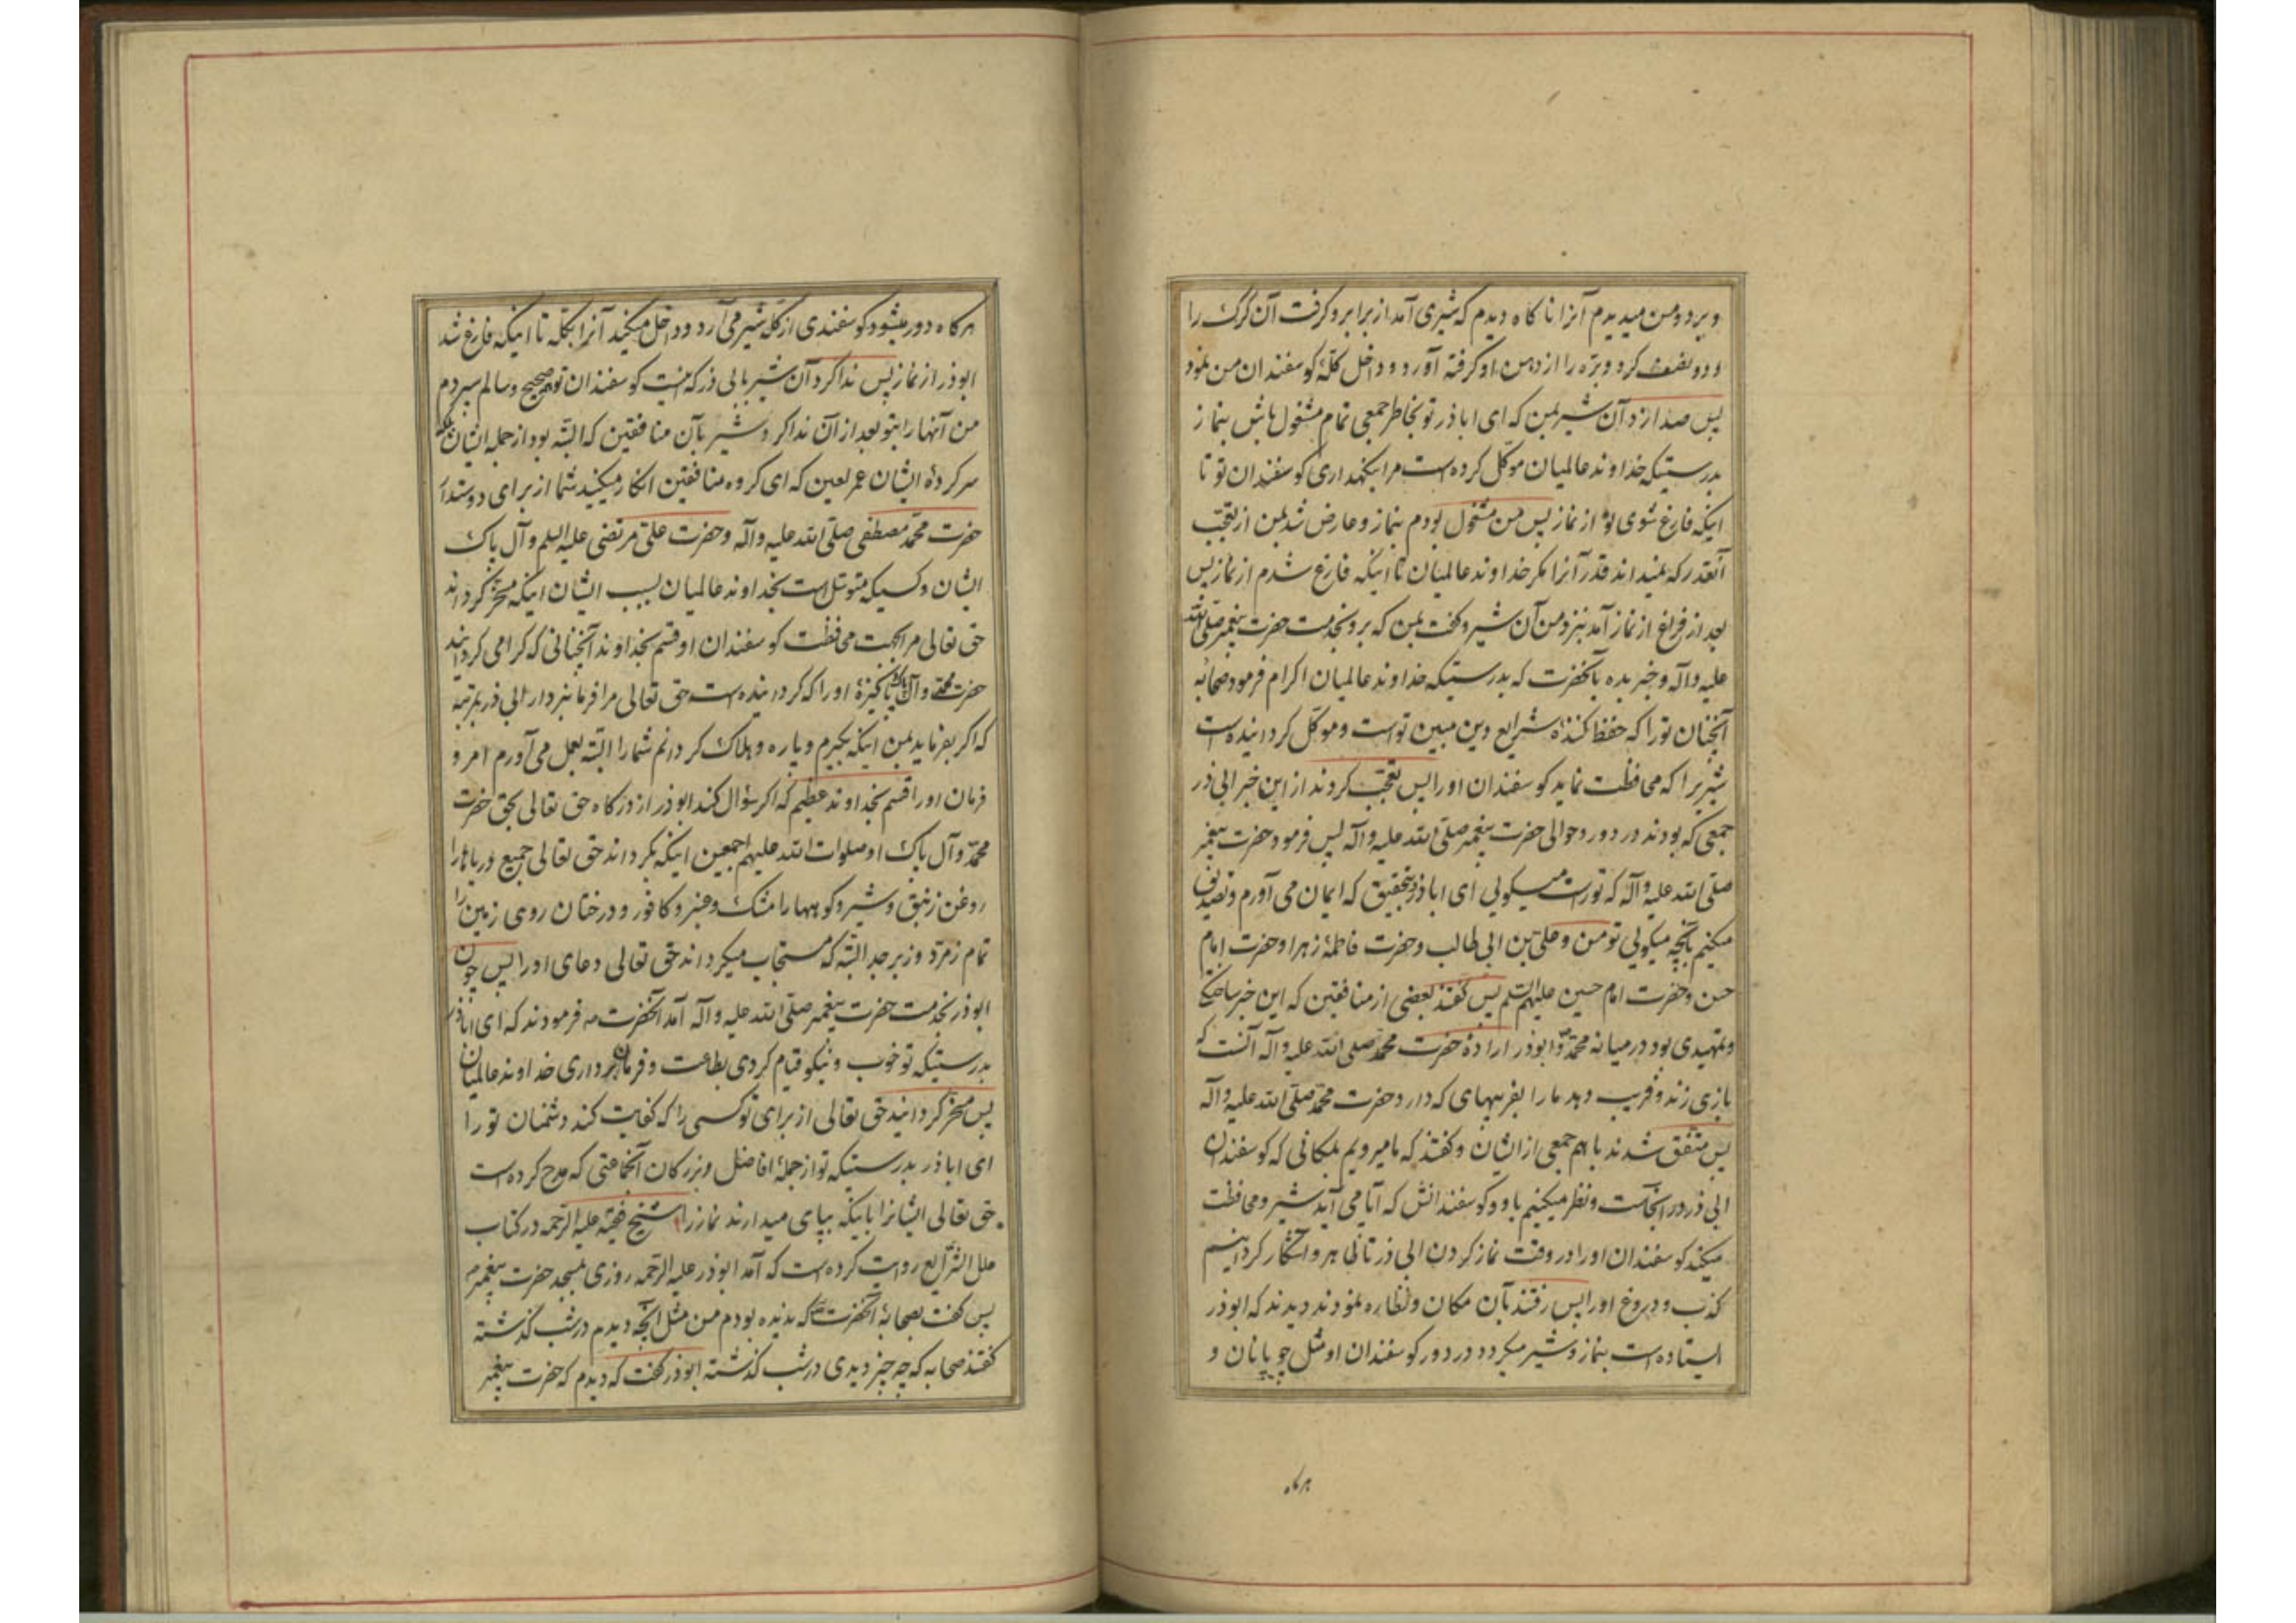 و برد و من میدیدم آنرا ناکاه دیدم که شیری آمد از برابر و کرفت آن کرک را
و دو نصف کرد و بره را از دهن او کرفته آورد و داخل کلهٔ کوسفندان من نمود
پس صدا زد آن شیر بمن که ای اباذر تو بخاطر جمعی تمام مشغول باش بنماز
بدرستیکه خداوند عالمیان موکل کرده است مرا بنکهداری کوسفندان تو تا
اینکه فارغ شوی تو از نماز پس من مشغول بودم بنماز و عارض شد بمن از تعجب
آنقدر که نمیداند قدر آنرا مکر خداوند عالمیان تا اینکه فارغ شدم از نماز پس
بعد از فراغ از نماز آمد بنزد من آن شیر و کفت بمن که برو بخدمت حضرت پیغمبر صلی الله
علیه و آله و خبر بده بآنحضرت که بدرستیکه خداوند عالمیان اکرام فرمود صحابهٔ
آنچنان تو را که حفظ کنندهٔ شرایع دین مبین تو است و موکل کردانیده است
شیریرا که محافظت نماید کوسفندان او را پس تعجب کردند از این خبر ابی ذر
جمعی که بودند در دور و حوالی حضرت پیغمبر صلی الله علیه و آله پس فرمود حضرت پیغمبر
صلی الله علیه و آله که تو راست میکوئی ای اباذر و بتحقیق که ایمان می آورم و تصدیق
میکنیم بآنچه میکوئی تو من و علی بن ابی طالب و حضرت فاطمهٔ زهرا و حضرت امام
حسن و حضرت امام حسین علیهم السلم پس کفتند بعضی از منافقین که این خبر ساختکی
و تمهیدی بود در میانه محمد و ابوذر ارادهٔ حضرت محمد صلی الله علیه و آله آنست که
بازی زند و فریب دهد ما را بفریبهای که دارد حضرت محمد صلی الله علیه و آله
پس متفق شدند با هم جمعی از ایشان و کفتند که ما میرویم بمکانی که کوسفندان
ابی ذر در آنجاست و نظر میکنیم باو و کوسفندانش که آیا می آید شیر و محافظت
میکند کوسفندان او را در وقت نماز کردن ابی ذر تا ظاهر و آشکار کردانیم
کذب و دروغ او را پس رفتند بآن مکان و نظاره نمودند دیدند که ابوذر
ایستاده است بنماز و شیر میکردد در دور کوسفندان او مثل چوپانان و
هرکاه
هرکاه دور میشود کوسفندی از کله شیر می آرد و داخل میکند آنرا بکله تا اینکه فارغ شد
ابوذر از نماز پس ندا کرد آن شیر بابی ذر که کوسفندان تو صحیح و سالم سپردم
من آنها را بتو بعد از آن ندا کرد شیر بآن منافقین که البته بود از جمله ایشان بلکه
سرکردهٔ ایشان عمر لعین که ای کروه منافقین انکار میکنید شما از برای دوستدار
حضرت محمد مصطفی صلی الله علیه و آله و حضرت علی مرتضی علیه السلم و آل پاک
ایشان و کسیکه متوسل است بخداوند عالمیان بسبب ایشان اینکه مسخر کرداند
حق تعالی مرا بجهت محافظت کوسفندان او قسم بخداوند آنچنانی که کرامی کردانید
حضرت محمد و آل پاک پاکیزهٔ او را که کردانیده است حق تعالی مرا فرمانبردار ابی ذر بمرتبهٔ
که اکر بفرماید بمن اینکه بکیرم و پاره و هلاک کردانم شما را البته بعمل می آورم امر و
فرمان او را قسم بخداوند عظیم که اکر سؤال کند ابوذر از درکاه حق تعالی بحق حضرت
محمد و آل پاک او صلوات الله علیهم اجمعین اینکه بکرداند حق تعالی جمیع دریاها را
روغن زنبق و شیر و کوهها را مشک و عنبر و کافور و درختان روی زمین را
تمام زمرد و زبرجد البته که مستجاب میکرداند حق تعالی دعای او را پس چون
ابوذر بخدمت حضرت پیغمبر صلی الله علیه و آله آمد آنحضرت فرمودند که ای اباذر
بدرستیکه تو خوب و نیکو قیام کردی بطاعت و فرمانبرداری خداوند عالمیان
پس مسخر کردانید حق تعالی از برای تو کسی را که کفایت کند دشمنان تو را
ای اباذر بدرستیکه تو از جملهٔ افاضل و بزرکان آنجماعتی که مدح کرده است
حق تعالی ایشانرا باینکه بپای میدارند نماز را شیخ فقیه علیه الرحمه در کتاب
علل الشرایع روایت کرده است که آمد ابوذر علیه الرحمه روزی بمسجد حضرت پیغمبر
پس کفت بصحابهٔ آنحضرت که ندیده بودم من مثل آنچه دیدم در شب کذشته
کفتند صحابه که چه چیز دیدی در شب کذشته ابوذر کفت که دیدم که حضرت پیغمبر